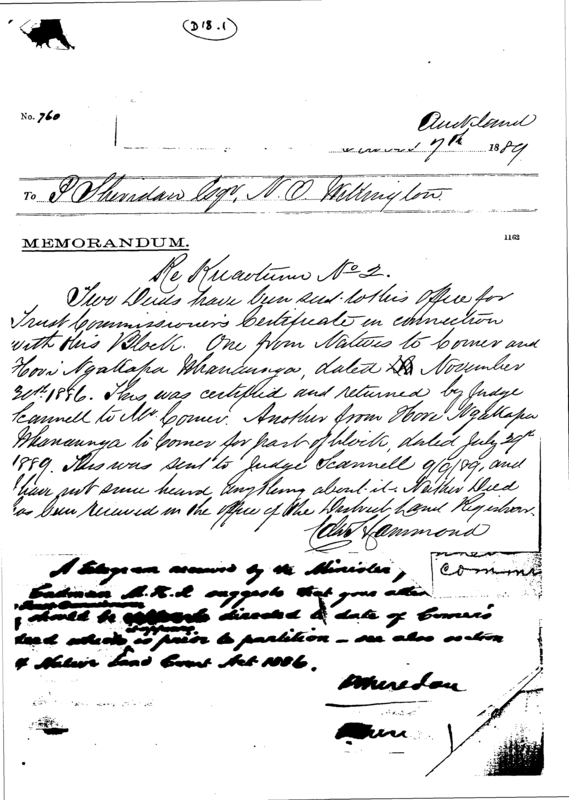 D18.1
No. 760
Auckland
7th 1889
To P Sheridan Esqr, N. O. Wellington.
MEMORANDUM.
1162
Re Kuaotunu No 2.
Two Deeds have been sent to this Office for
Trust Commissioner's Certificate in connection
with this Block. One from Natives to Comer and
Hori Ngakapa Whanaunga, dated November
1886. This was certified and returned by Judge
Scannell to Mr. Comer. Another from Hori Ngakapa
Whanaunga to Comer for part of block, dated July 29th
1889. This was sent to Judge Scannell 9/9/89, and
have not since heard anything about it. Neither Deed
has been received in the office of the District Land Registrar.
Hammond
A telegram received by the Minister,
Cadman M.H.R suggests that your
should be directed to date of Comer's
deed which appears is prior to partition – see also section
of Native Land Court Act 1886.
PSheridan